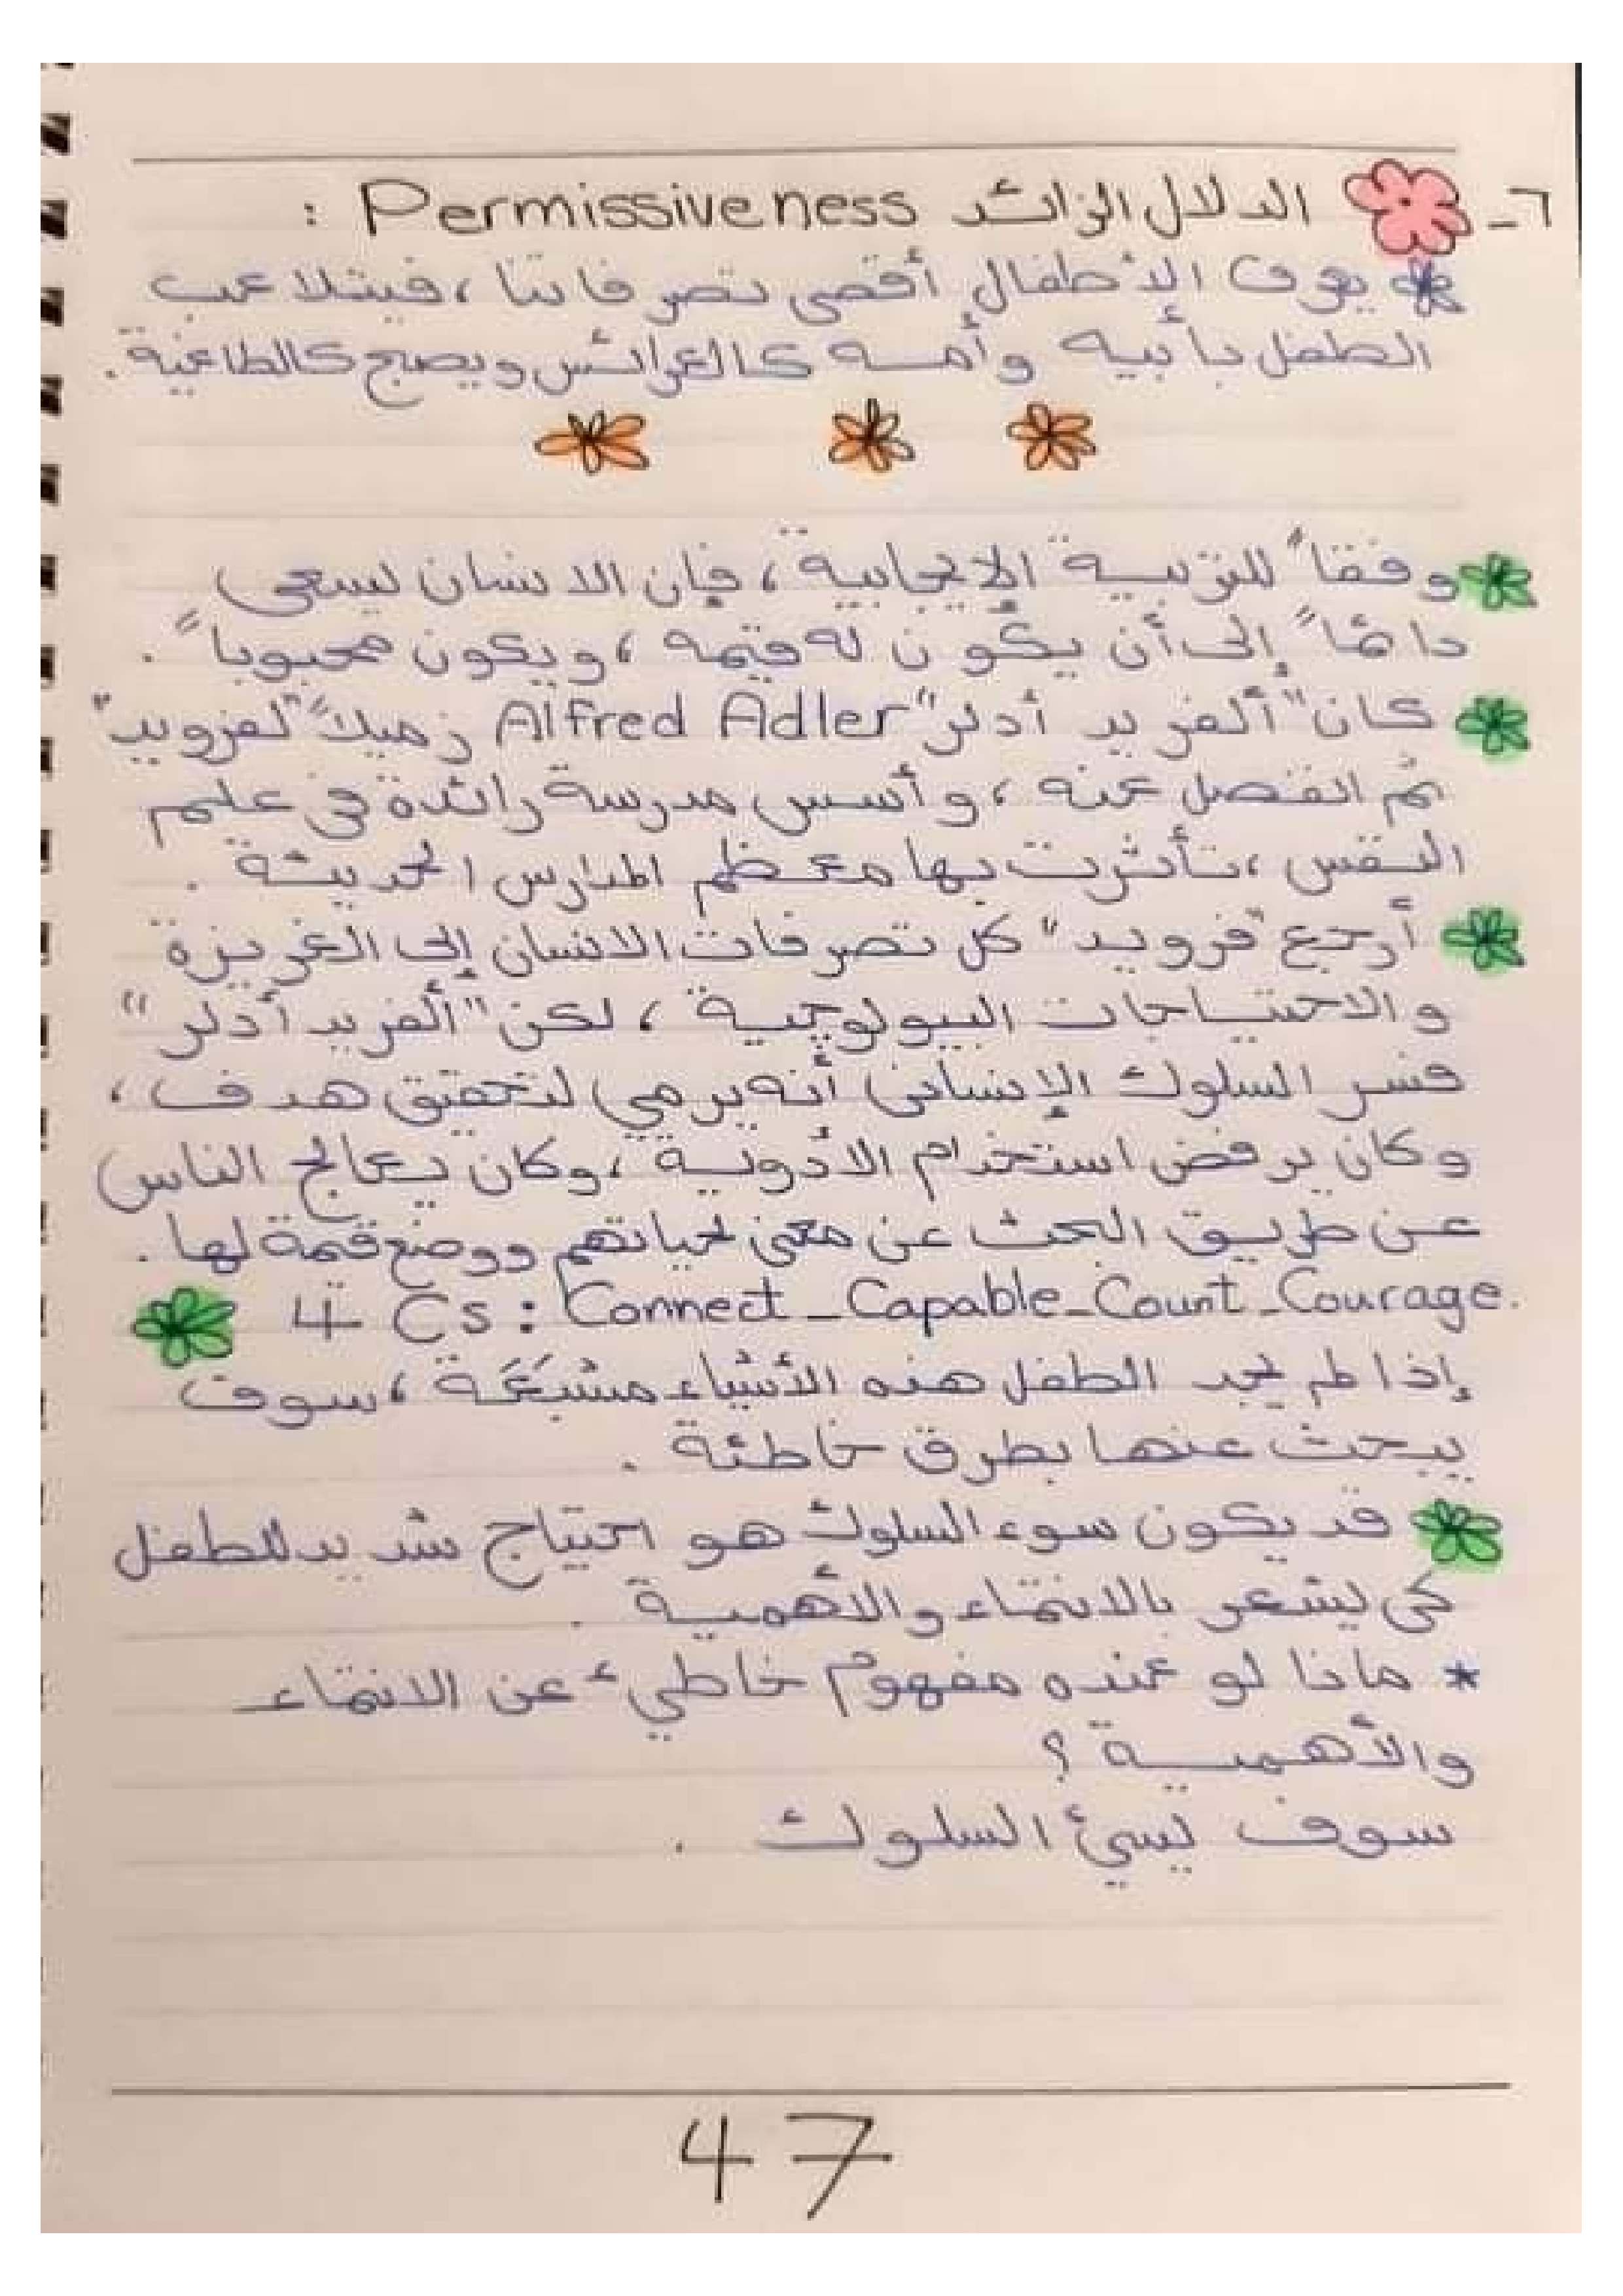 ٦- الدلال الزائد Permissiveness :
* يهوى الأطفال أقصى تصرفاتنا ، فيتلاعب
الطفل بأبيه وأمه كالعرائس ويصبح كالطاغية .
* وفقاً للتربية الإيجابية ، فإن الانسان ليسعى
دائماً إلى أن يكون له قيمه ، ويكون محبوباً .
كان "ألفريد أدلر" Alfred Adler زميلاً "لفرويد"
ثم انفصل عنه ، وأسس مدرسة رائدة فى علم
النفس ، تأثرت بها معظم المدارس الحديثة .
أرجع "فرويد" كل تصرفات الانسان إلى الغريزة
والاحتياجات البيولوچية ، لكن "ألفريد أدلر"
فسر السلوك الإنسانى أنه يرمي لتحقيق هدف ،
وكان يرفض استخدام الأدوية ، وكان يعالج الناس
عن طريق البحث عن معنى لحياتهم ووضع قيمة لها .
4 Cs : Connect_Capable_Count_Courage.
إذا لم يجد الطفل هذه الأشياء مشبَعَة ، سوف
يبحث عنها بطرق خاطئة .
قد يكون سوء السلوك هو احتياج شديد للطفل
كى يشعر بالانتماء والأهمية .
* ماذا لو عنده مفهوم خاطيء عن الانتماء
والأهمية ؟
سوف يسيئ السلوك .
47